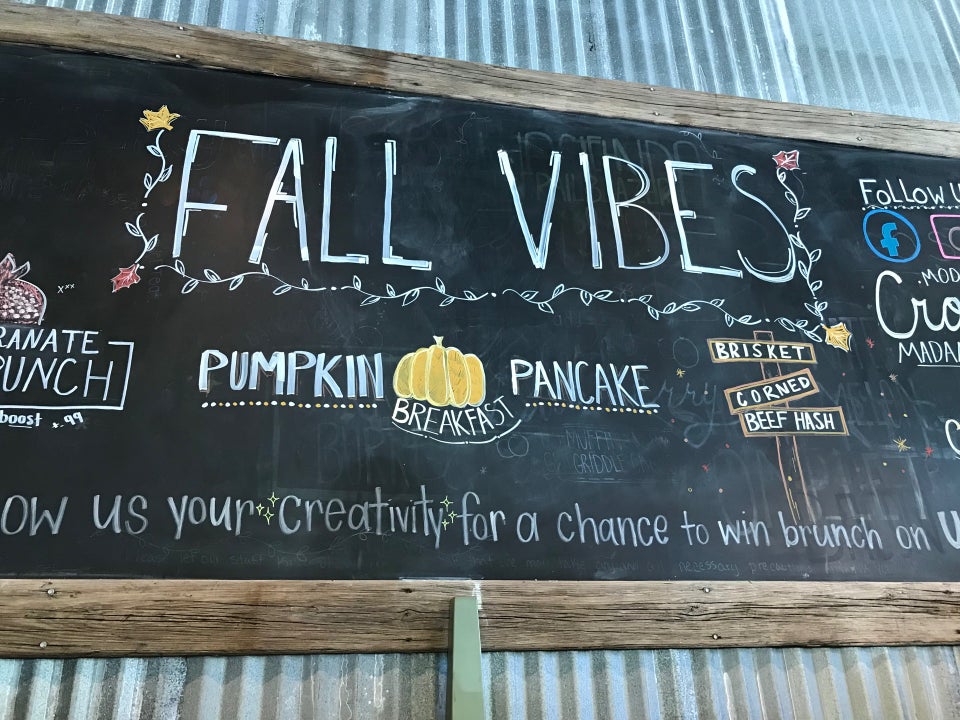 FALL VIBES
FOLLOW U
MOD
CRO
MADA
RANATE
PUNCH
boost +.99
PUMPKIN BREAKFAST PANCAKE
BRISKET
CORNED
BEEF HASH
OW us your creativity for a chance to win brunch on U